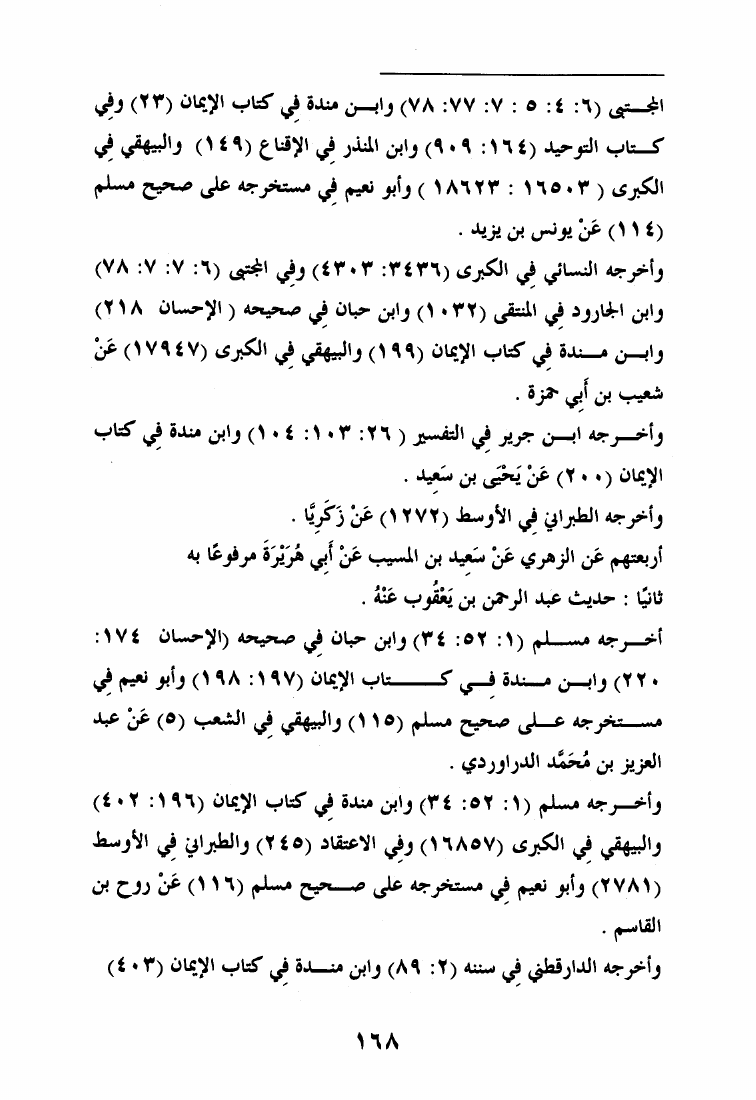 المجـتبى (٦: ٤: ٥ : ٧: ٧٧: ٧٨) وابـن مندة في كتاب الإيمان (٢٣) وفي
كـتاب التوحيد (١٦٤: ٩٠٩) وابن المنذر في الإقناع (١٤٩) والبيهقي في
الكبرى ( ١٦٥٠٣ : ١٨٦٢٣ ) وأبو نعيم في مستخرجه على صحيح مسلم
(١١٤) عَنْ يونس بن يزيد .
وأخرجه النسائي في الكبرى (٣٤٣٦: ٤٣٠٣) وفي المجتبى (٦: ٧: ٧: ٧٨)
وابن الجارود في المنتقى (١٠٣٢) وابن حبان في صحيحه ( الإحسان ٢١٨)
وابـن مـندة في كتاب الإيمان (١٩٩) والبيهقي في الكبرى (١٧٩٤٧) عَنْ
شعيب بن أَبِي حمزة .
وأخـرجه ابـن جرير في التفسير ( ٢٦: ١٠٣: ١٠٤) وابن مندة في كتاب
الإيمان (٢٠٠) عَنْ يَحْيَى بن سَعِيد .
وأخرجه الطبراني في الأوسط (١٢٧٢) عَنْ زَكَرِيَّا .
أربعتهم عَن الزهري عَنْ سَعِيد بن المسيب عَنْ أَبِي هُرَيْرَةَ مرفوعًا به
ثانيًا : حديث عبد الرحمن بن يَعْقُوب عَنْهُ .
أخـرجه مسـلم (١: ٥٢: ٣٤) وابن حبان في صحيحه (الإحسان ١٧٤:
٢٢٠) وابـن مـندة فـي كـتاب الإيمان (١٩٧: ١٩٨) وأبو نعيم في
مسـتخرجه عـلى صحيح مسلم (١١٥) والبيهقي في الشعب (٥) عَنْ عبد
العزيز بن مُحَمَّد الدراوردي .
وأخـرجه مسلم (١: ٥٢: ٣٤) وابن مندة في كتاب الإيمان (١٩٦: ٤٠٢)
والبيهقي في الكبرى (١٦٨٥٧) وفي الاعتقاد (٢٤٥) والطبراني في الأوسط
(٢٧٨١) وأبو نعيم في مستخرجه على صـحيح مسلم (١١٦) عَنْ روح بن
القاسم .
وأخرجه الدارقطني في سننه (٢: ٨٩) وابن منـدة في كتاب الإيمان (٤٠٣)
١٦٨